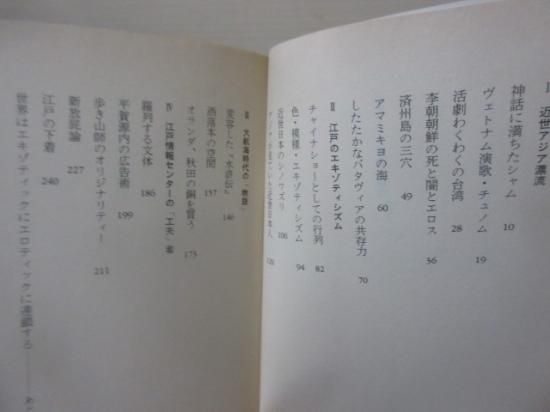 I 近世アジア漂流
神話に満ちたシャム 10
ヴェトナム演歌・チュノム 19
活劇わくわくの台湾 28
李朝朝鮮の死と闇とエロス 36
済州島の三穴 49
アマミキヨの海 60
したたかなバタヴィアの共存力 70
II 江戸のエキゾティシズム
チャイナショーとしての行列 82
色・模様・エキゾティシズム 94
近世日本のシノワズリ 106
アジアが見ていた近世日本人 120
III 大航海時代の「物語」
変容した『水滸伝』 140
洒落本の空間 157
オランダ、秋田の銅を買う 175
IV 江戸情報センターの「工夫」者
羅列する文体 186
平賀源内の広告術 199
歩き山師のオリジナリティー 211
新放屁論 227
江戸の下着 240
世界はエキゾティックにエロティックに連鎖する